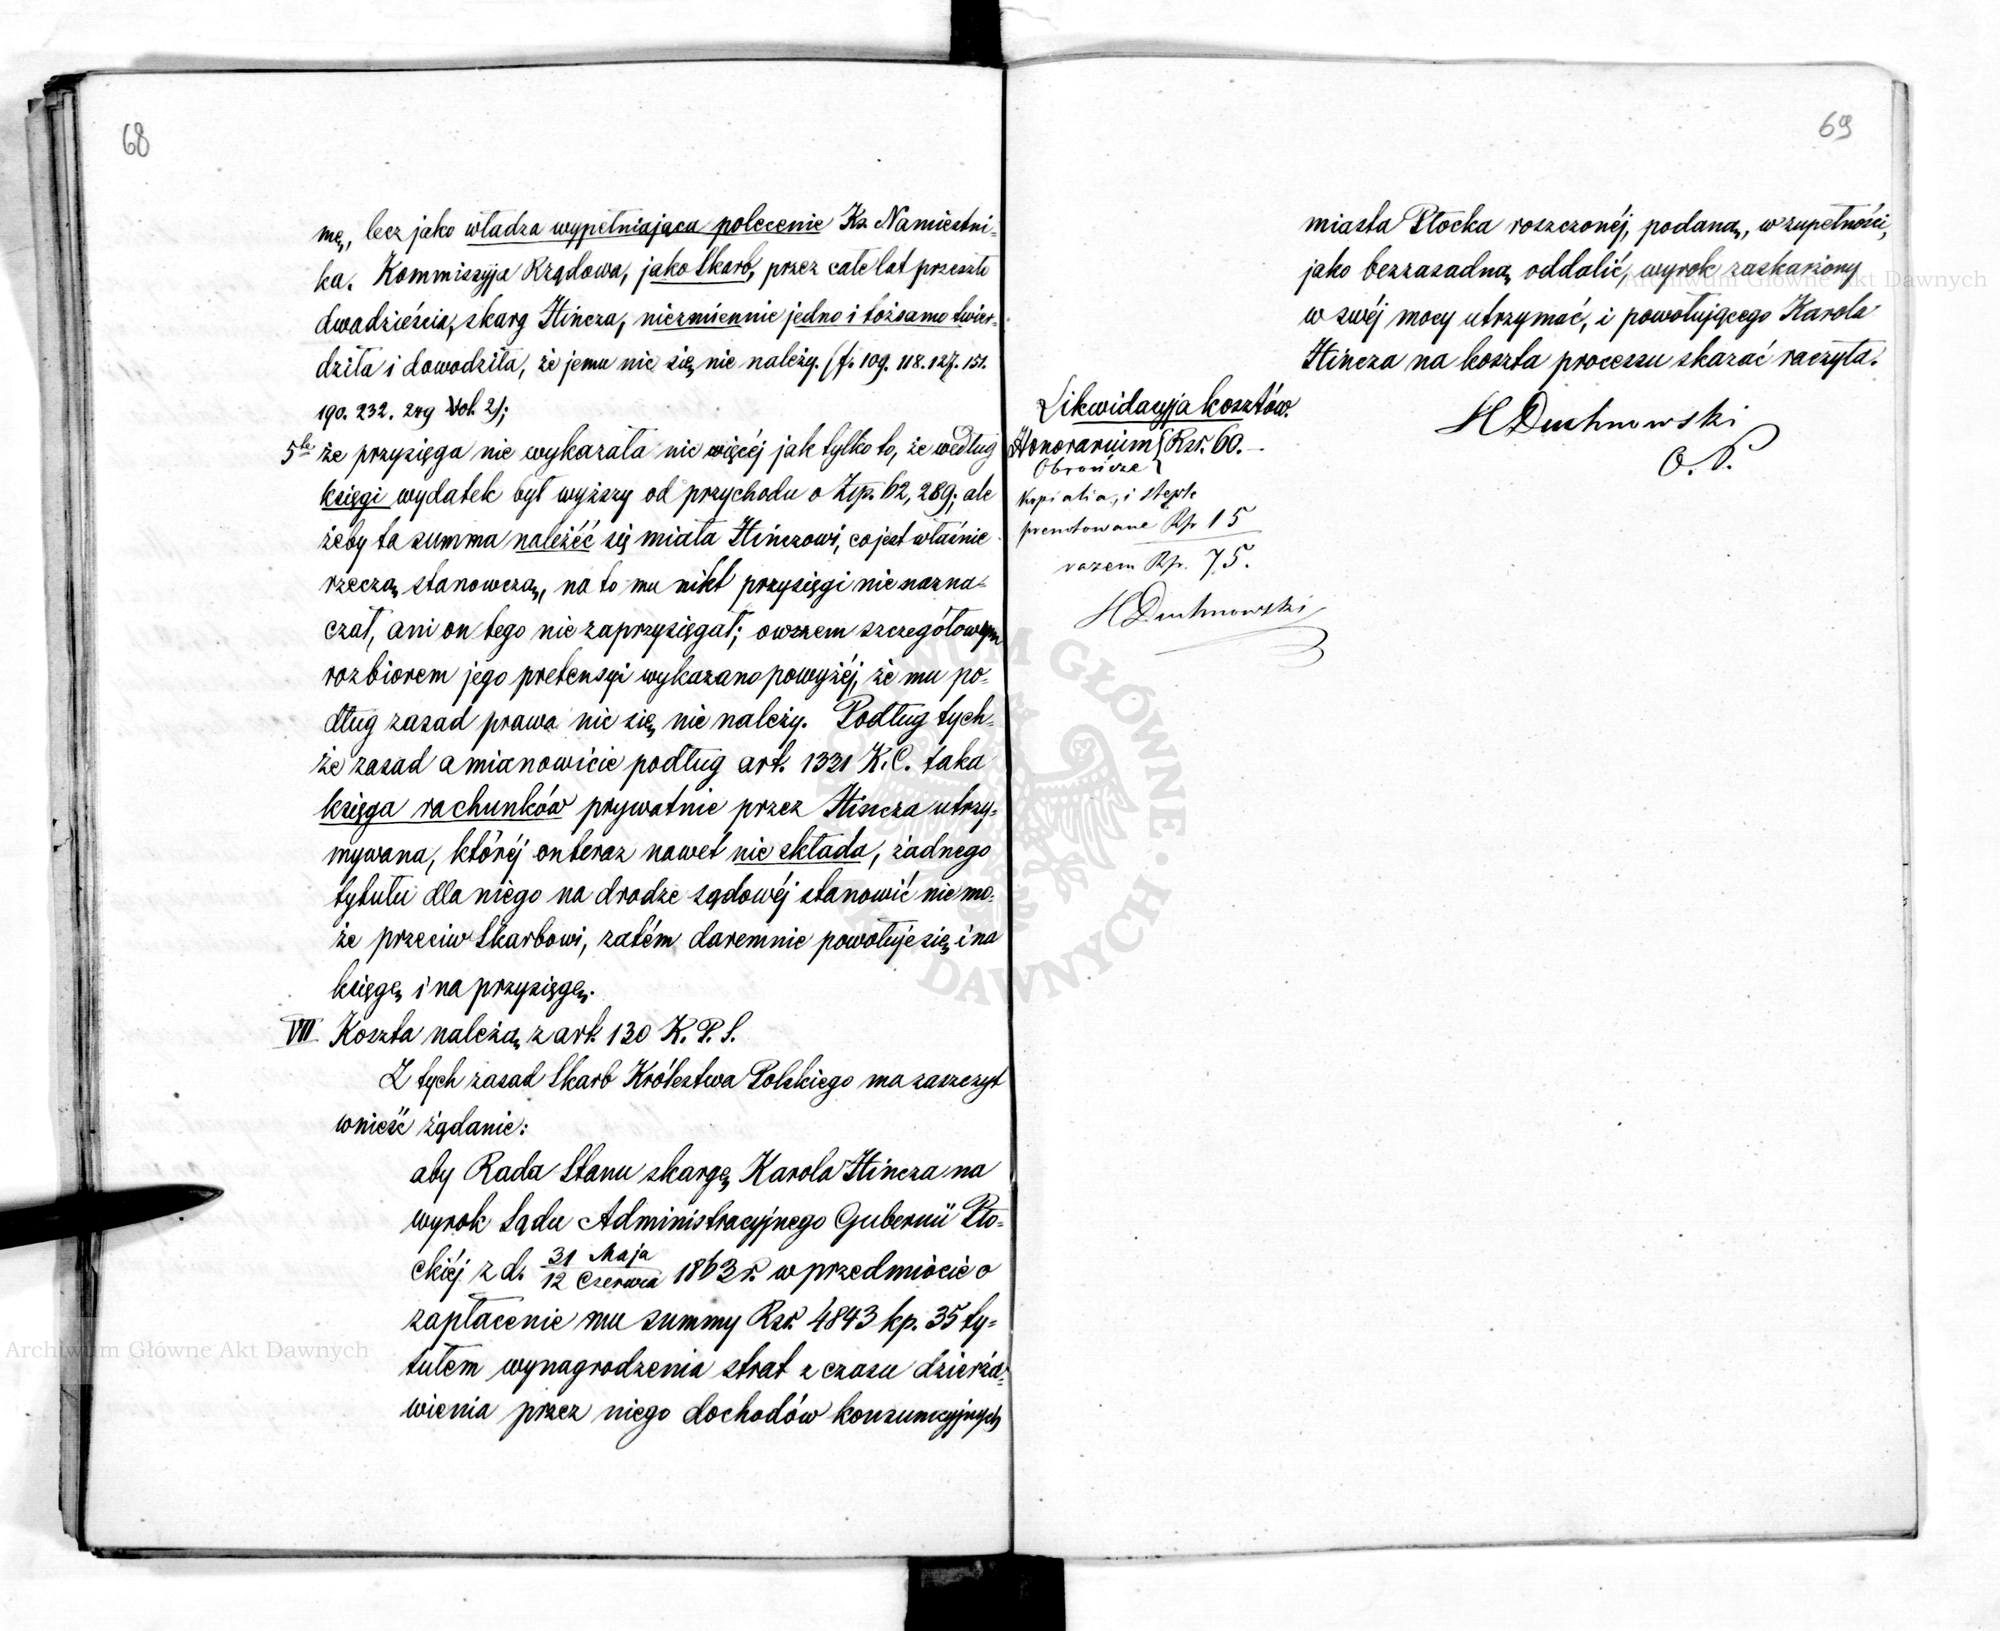 68
mę, lecz jako władza wypełniająca polecenie Ks. Namiestni-
ka. Kommissyja Rządowa, jako Skarb, przez całe lat przeszło
dwadzieścia, skarg Hincza, niezmiennie jedno i tożsamo twier-
dziła i dowodziła, że jemu nic się nie należy. (f. 109. 118. 127. 151.
190. 232. 279 Vol. 2);
5te że przysięga nie wykazała nic więcéj jak tylko to, że według
księgi wydatek był wyższy od przychodu o Złp. 62,289; ale
żeby ta summa należéć się miała Hinczowi, co jest właśnie
rzeczą stanowczą, na to mu nikt przysięgi nie nazna-
czał, ani on tego nie zaprzysięgał; owszem szczegółowym
rozbiorem jego pretensyi wykazano powyżéj, że mu po-
dług zasad prawa nic się nie należy. Podług tych-
że zasad a mianowicie podług art. 1331 K.C. taka
księga rachunków prywatnie przez Hincza utrzy-
mywana, któréj on teraz nawet nie składa, żadnego
tytułu dla niego na drodze sądowéj stanowić nie mo-
że przeciw Skarbowi, zatém daremnie powołuje się i na
księgę i na przysięgę.
VII Koszta należą z art. 130 K. P. S.
Z tych zasad Skarb Królestwa Polskiego ma zaszczyt
wnieść żądanie:
aby Rada Stanu skargę Karola Hincza na
wyrok Sądu Administracyjnego Gubernii Pło-
ckiéj z d. 31 Maja / 12 Czerwca 1863 r. w przedmiocie o
zapłacenie mu summy Rsr. 4843 kp. 35 ty-
tułem wynagrodzenia strat z czasu dzierża-
wienia przez niego dochodów konsumcyjnych
69
miasta Płocka roszczonéj, podaną, w zupełności,
jako bezzasadną oddalić, wyrok zaskarżony
w swéj mocy utrzymać, i powołującego Karola
Hincza na koszta processu skazać raczyła.
H Duchnowski
O. P.
Likwidacyja kosztów.
Honorarium } Rsr. 60.—
Obrończe
Kopialia, i stęple
prenotowane Rs 15
razem Rs. 75.
H Duchnowski
Archiwum Główne Akt Dawnych
Archiwum Główne Akt Dawnych
ARCHIWUM GŁÓWNE AKT DAWNYCH